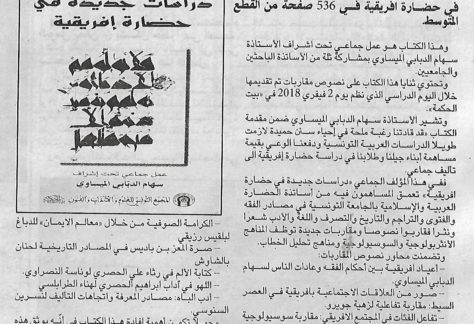 في حضارة افريقية فــي 536 صفحة من القطع
المتوسط.
وهذا الكتاب هو عمل جماعي تحت اشراف الاستاذة
سهام الدبابي الميساوي بمشاركة ثلة من الأساتذة الباحثين
والجامعيين.
وتحتوي ثنايا هذا الكتاب على نصوص مقاربات تم تقديمها
خلال اليوم الدراسي الذي نظم يوم 2 فيفري 2018 في «بيت
الحكمة».
وتشير الأستاذة سهام الدبابي الميساوي ضمن مقدمة
الكتاب «قد قادتنا رغبة ملحة في إحياء سنن حميدة لازمت
طويلا الدراسات العربية التونسية ودفعنا الوعي بقيمة
مساهمة أبناء جيلنا وطلابنا في دراسة حضارة إفريقية الى
تأليف جماعي
ففي هذا المؤلف الجماعي «دراسات جديدة في حضارة
إفريقية» تعمق المساهمون فيه من أساتذة الحضارة
العربية والإسلامية بالجامعة التونسية في مصادر الفقه
والفتوى والتراجم والتاريخ والتصرف واللغة والأدب شعرا
ونثرا فقاربوا نصوصا ومقاربات جديدة توظف المناهج
الانثربولوجية والسوسيولوجية ومناهج تحليل الخطاب.
وتضمنت محاور نصوص المقاربات:
- أعياد افريقية بــين أحكام الفقه وعادات الناس لسهام
الدبابي الميساوي.
- صــور مــن العلاقــات الاجتماعيــة بافريقيــة في العصر
السيط: مقاربة تفاعلية لزهية جويرو.
- تفاعل الفئات في المجتمع الافريقي: مقاربة سوسيولوجية
دراسات جديدة في
حضارة إفريقية
عمل جماعي تحت إشراف
سهام الدبابي الميساوي
المجمع التونسي للعلوم والآداب والفنون
- الكرامة الصوفية من خلال «معالـم الايمان» للدباغ
لبلقيس رزيقي
- صــرة المعز بن باديس في المصــادر التاريخيــة لحنان
بالشاوش
- كتابة الألم في رثاء علي الحصري لوناسة النصراوي.
- اللهو في آداب ابراهيم الحصري لهناء الطرابلسي
- أدب الباه: مصادر المعرفة واتجاهات التأليف لنسرين
السنوسي.